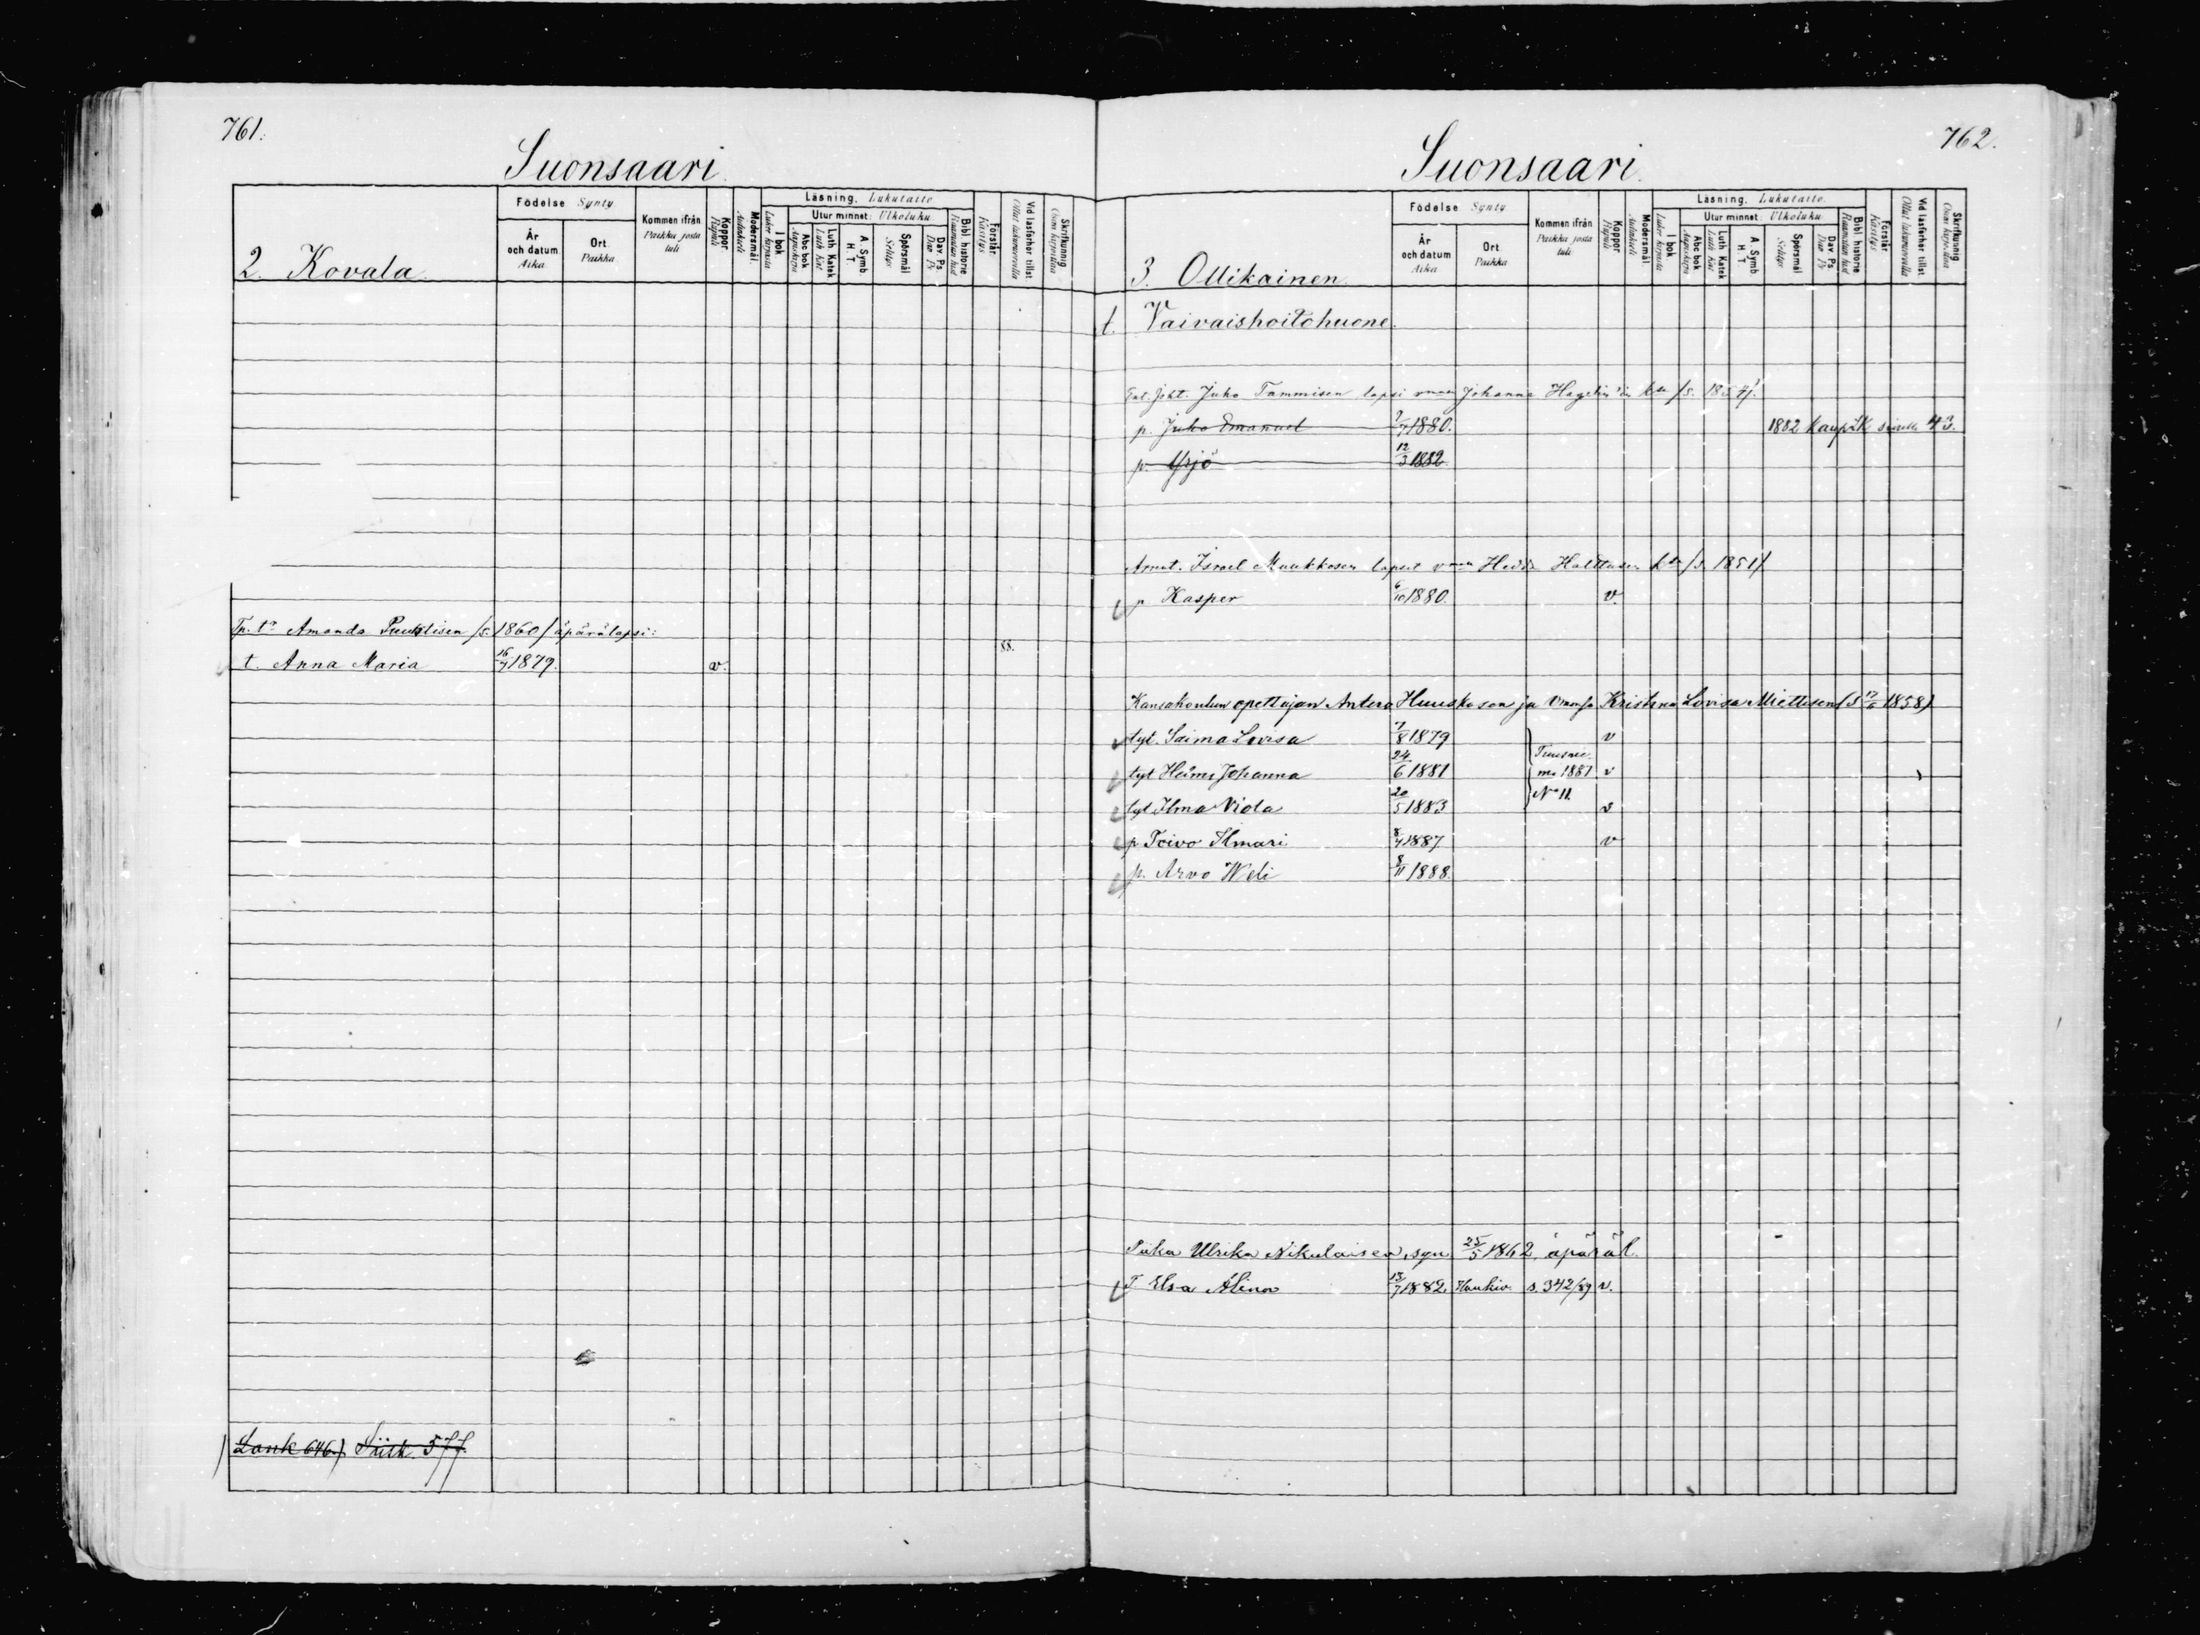 761.
Suonsaari
2. Kovala
Födelse Synty
År och datum Aika
Ort Paikka
Kommen ifrån Paikka josta tuli
Koppor Rupuli
Modersmål. Äidinkieli
Läsning. Lukutaito
I bok Lukee kirjasta
Utur minnet: Ulkoluku
Abc bok Aapiskirja
Luth. Katek Luth Kat
A. Symb. H. T.
Spörsmål Selitys
Dav. Ps Daw Ps
Bibl historie Raamatun hist
Förstår Käsitys
Vid läsförhör tillst. Ollut lukuvuorolla
Skrifkunnig Osaa kirjoittaa
Tp. tr Amanda Puustisen /s. 1860/ äpärälapsi:
88.
t. Anna Maria 16/7 1879. v.
Lauk 646) Siist. 577.
762.
Suonsaari.
3. Ollikainen.
Födelse Synty
År och datum Aika
Ort Paikka
Kommen ifrån Paikka josta tuli
Koppor Rupuli
Modersmål. Äidinkieli
Läsning. Lukutaito
I bok Lukee kirjasta
Utur minnet: Ulkoluku
Abc bok Aapiskirja
Luth. Katek Luth Kat
A. Symb H. T
Spörsmål Selitys
Dav. Ps Daw Ps
Bibl historie Raamatun hist
Förstår Käsitys
Vid läsförhör tillst. Ollut lukuvuorolla
Skrifkunnig Osaa kirjoittaa
t. Vaivaishoitohuone.
Juho Tammisen lapsi vmon Johanna Hagelin'in kta /s. 1854/.
p. Juho Emanuel 7/7 1880. 1882 kaupik sivulle 43.
p. Yrjö 12/3 1882.
Israel Muukkosen lapset vmon Hedda Halttusen kta /s. 1851/
p Kasper 6/10 1880. v.
Kansakoulun opettajan Antero Huuskosen ja Vmonsa Kristina Lovisa Miettisen (S 17/11 1858)
tyt. Saima Lovisa 7/8 1879 v
tyt Heimi Johanna 24/6 1881 me 1887 v
tyt Ilma Viola 20/5 1883 No 11. v
p Toivo Ilmari 8/4 1887 v
p. Arvo Weli 8/11 1888.
Piika Ulrika Nikulaisen, syn 25/5 1862, äpäräl.
T Elsa Alina 13/7 1882, Haukiv. s. 342/89 v.